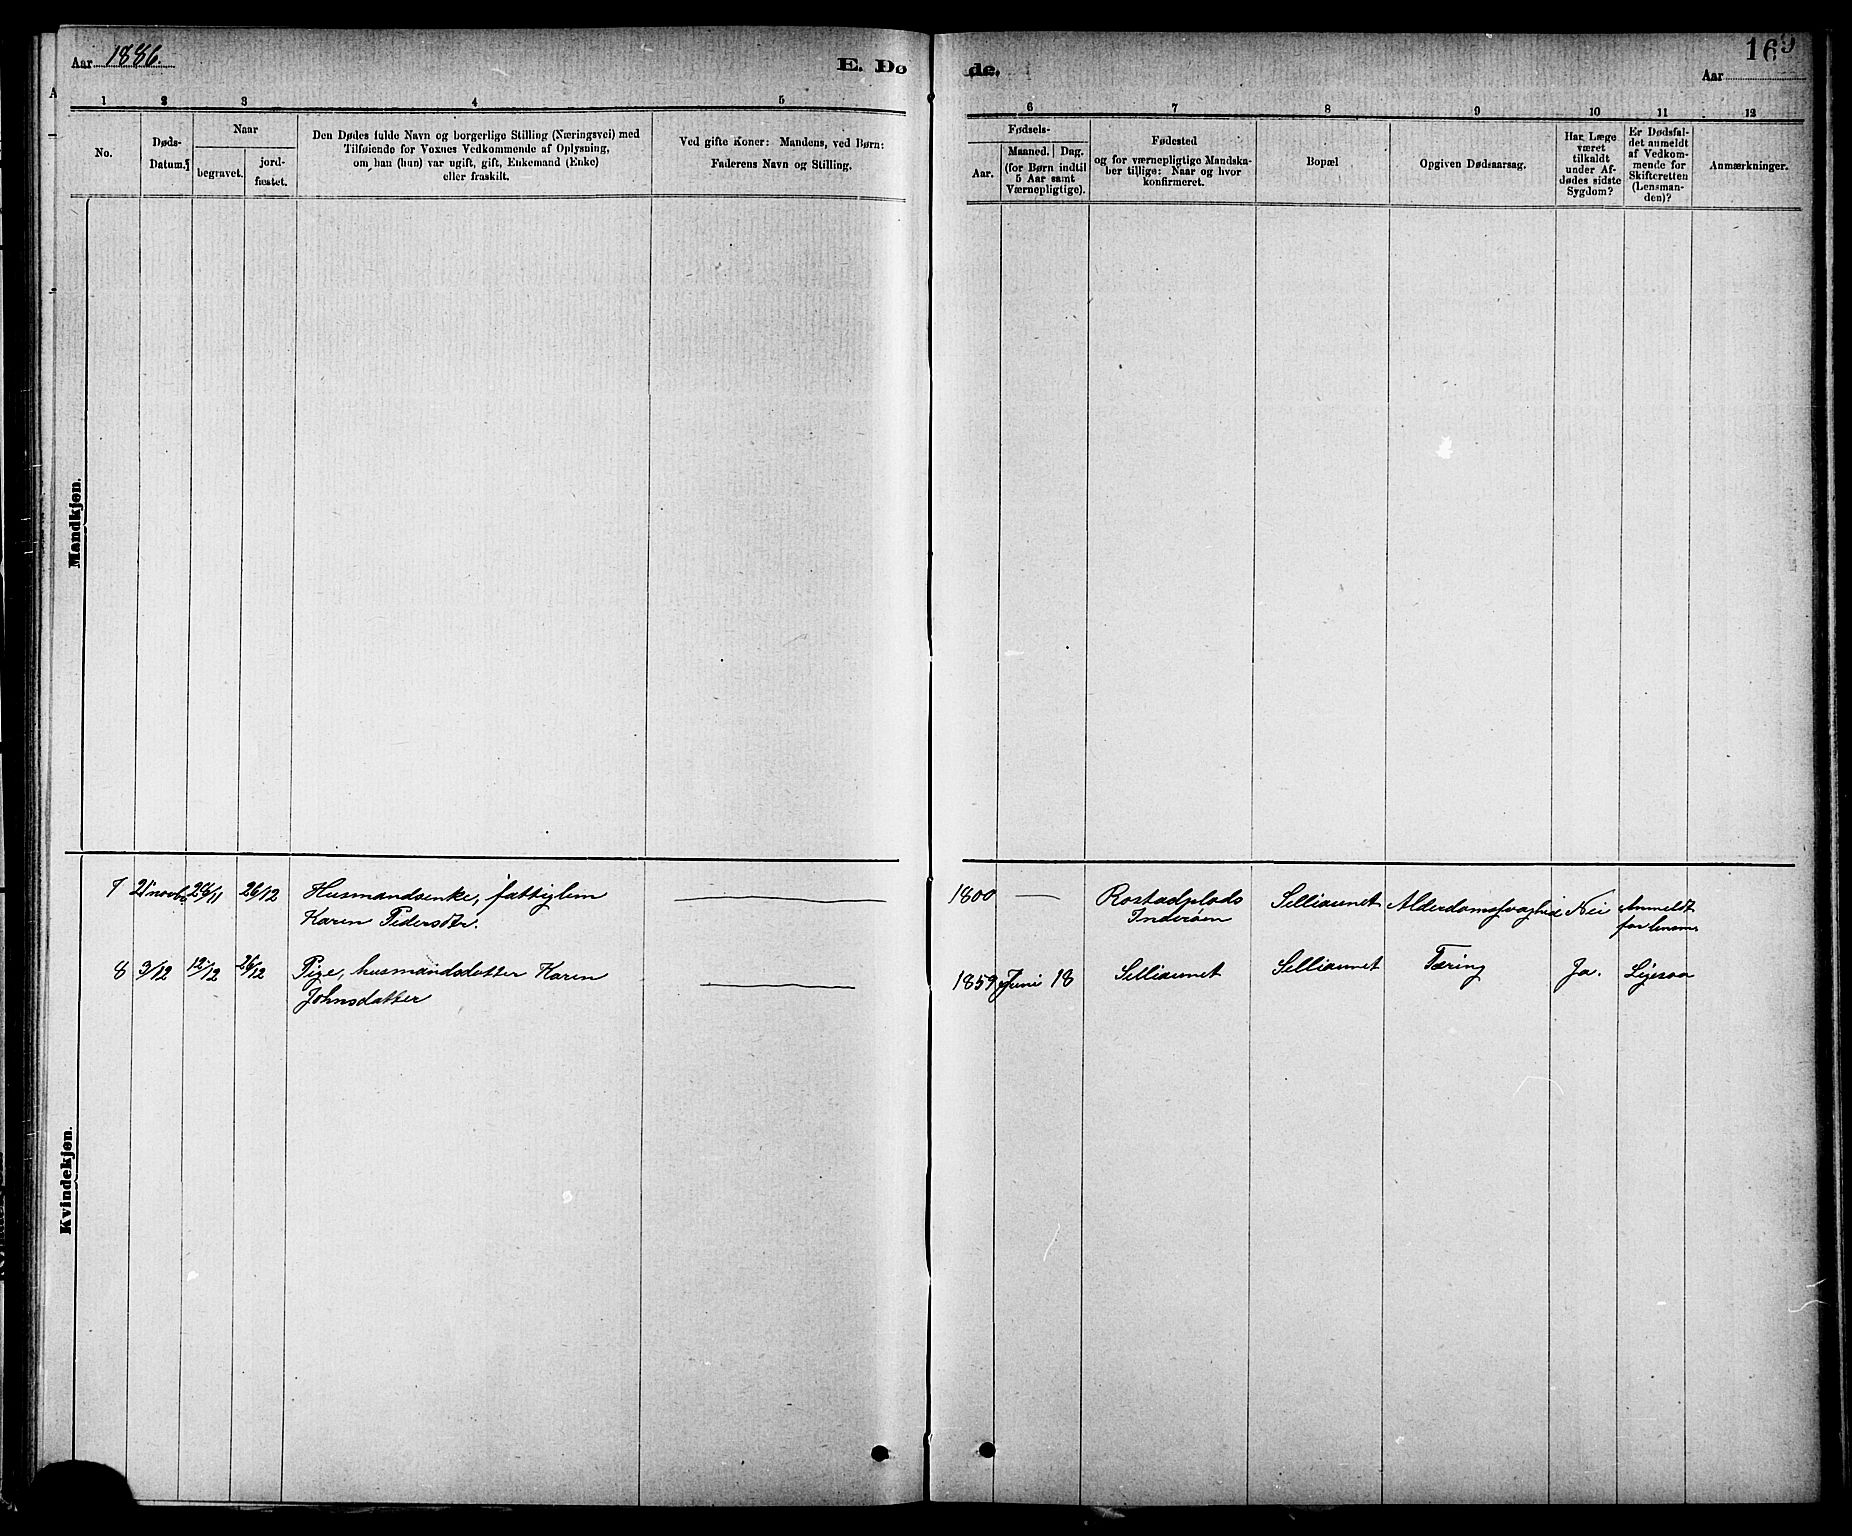 Aar 1886.
E. Dø
de.
169
Aar
1 2 3 4 5
6 7 8 9 10 11 12
No.
Døds-
Datum.
Naar
begravet.
jord-
fæstet.
Den Dødes fulde Navn og borgerlige Stilling (Næringsvei) med
Tilføiende for Voxnes Vedkommende af Oplysning,
om han (hun) var ugift, gift, Enkemand (Enke)
eller fraskilt.
Ved gifte Koner: Mandens, ved Børn:
Faderens Navn og Stilling.
Fødsels-
Aar.
Maaned. Dag.
(for Børn indtil
5 Aar samt
Værnepligtige).
Fødested
og for værnepligtige Mandska-
ber tillige: Naar og hvor
konfirmeret.
Bopæl
Opgiven Dødsaarsag.
Har Læge
været
tilkaldt
under Af-
dødes sidste
Sygdom?
Er Dødsfal-
det anmeldt
af Vedkom-
mende for
Skifteretten
(Lensman-
den)?
Anmærkninger.
Mandkjøn.
Kvindekjøn.
7 21 novb. 26/11 26/12 Husmandsenke, fattiglem 1800 — Rostadplads Selliaunet Alderdomssvaghed Nei Anmeldt
Karen Pedersdtr. Inderøen for lensm.
8 3/12 12/12 26/12 Pige, husmandsdatter Karen 1859 Juni 18 Selliaunet Selliaunet Tæring Ja. Ligesaa
Johnsdatter